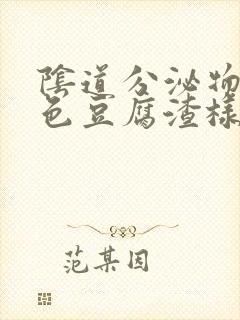 陰道分泌物
色豆腐渣樣
范某因